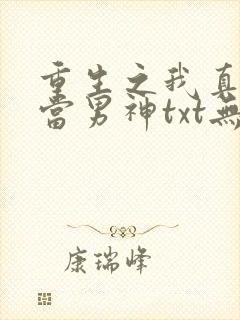 重生之我真
當男神txt無
康瑞峰